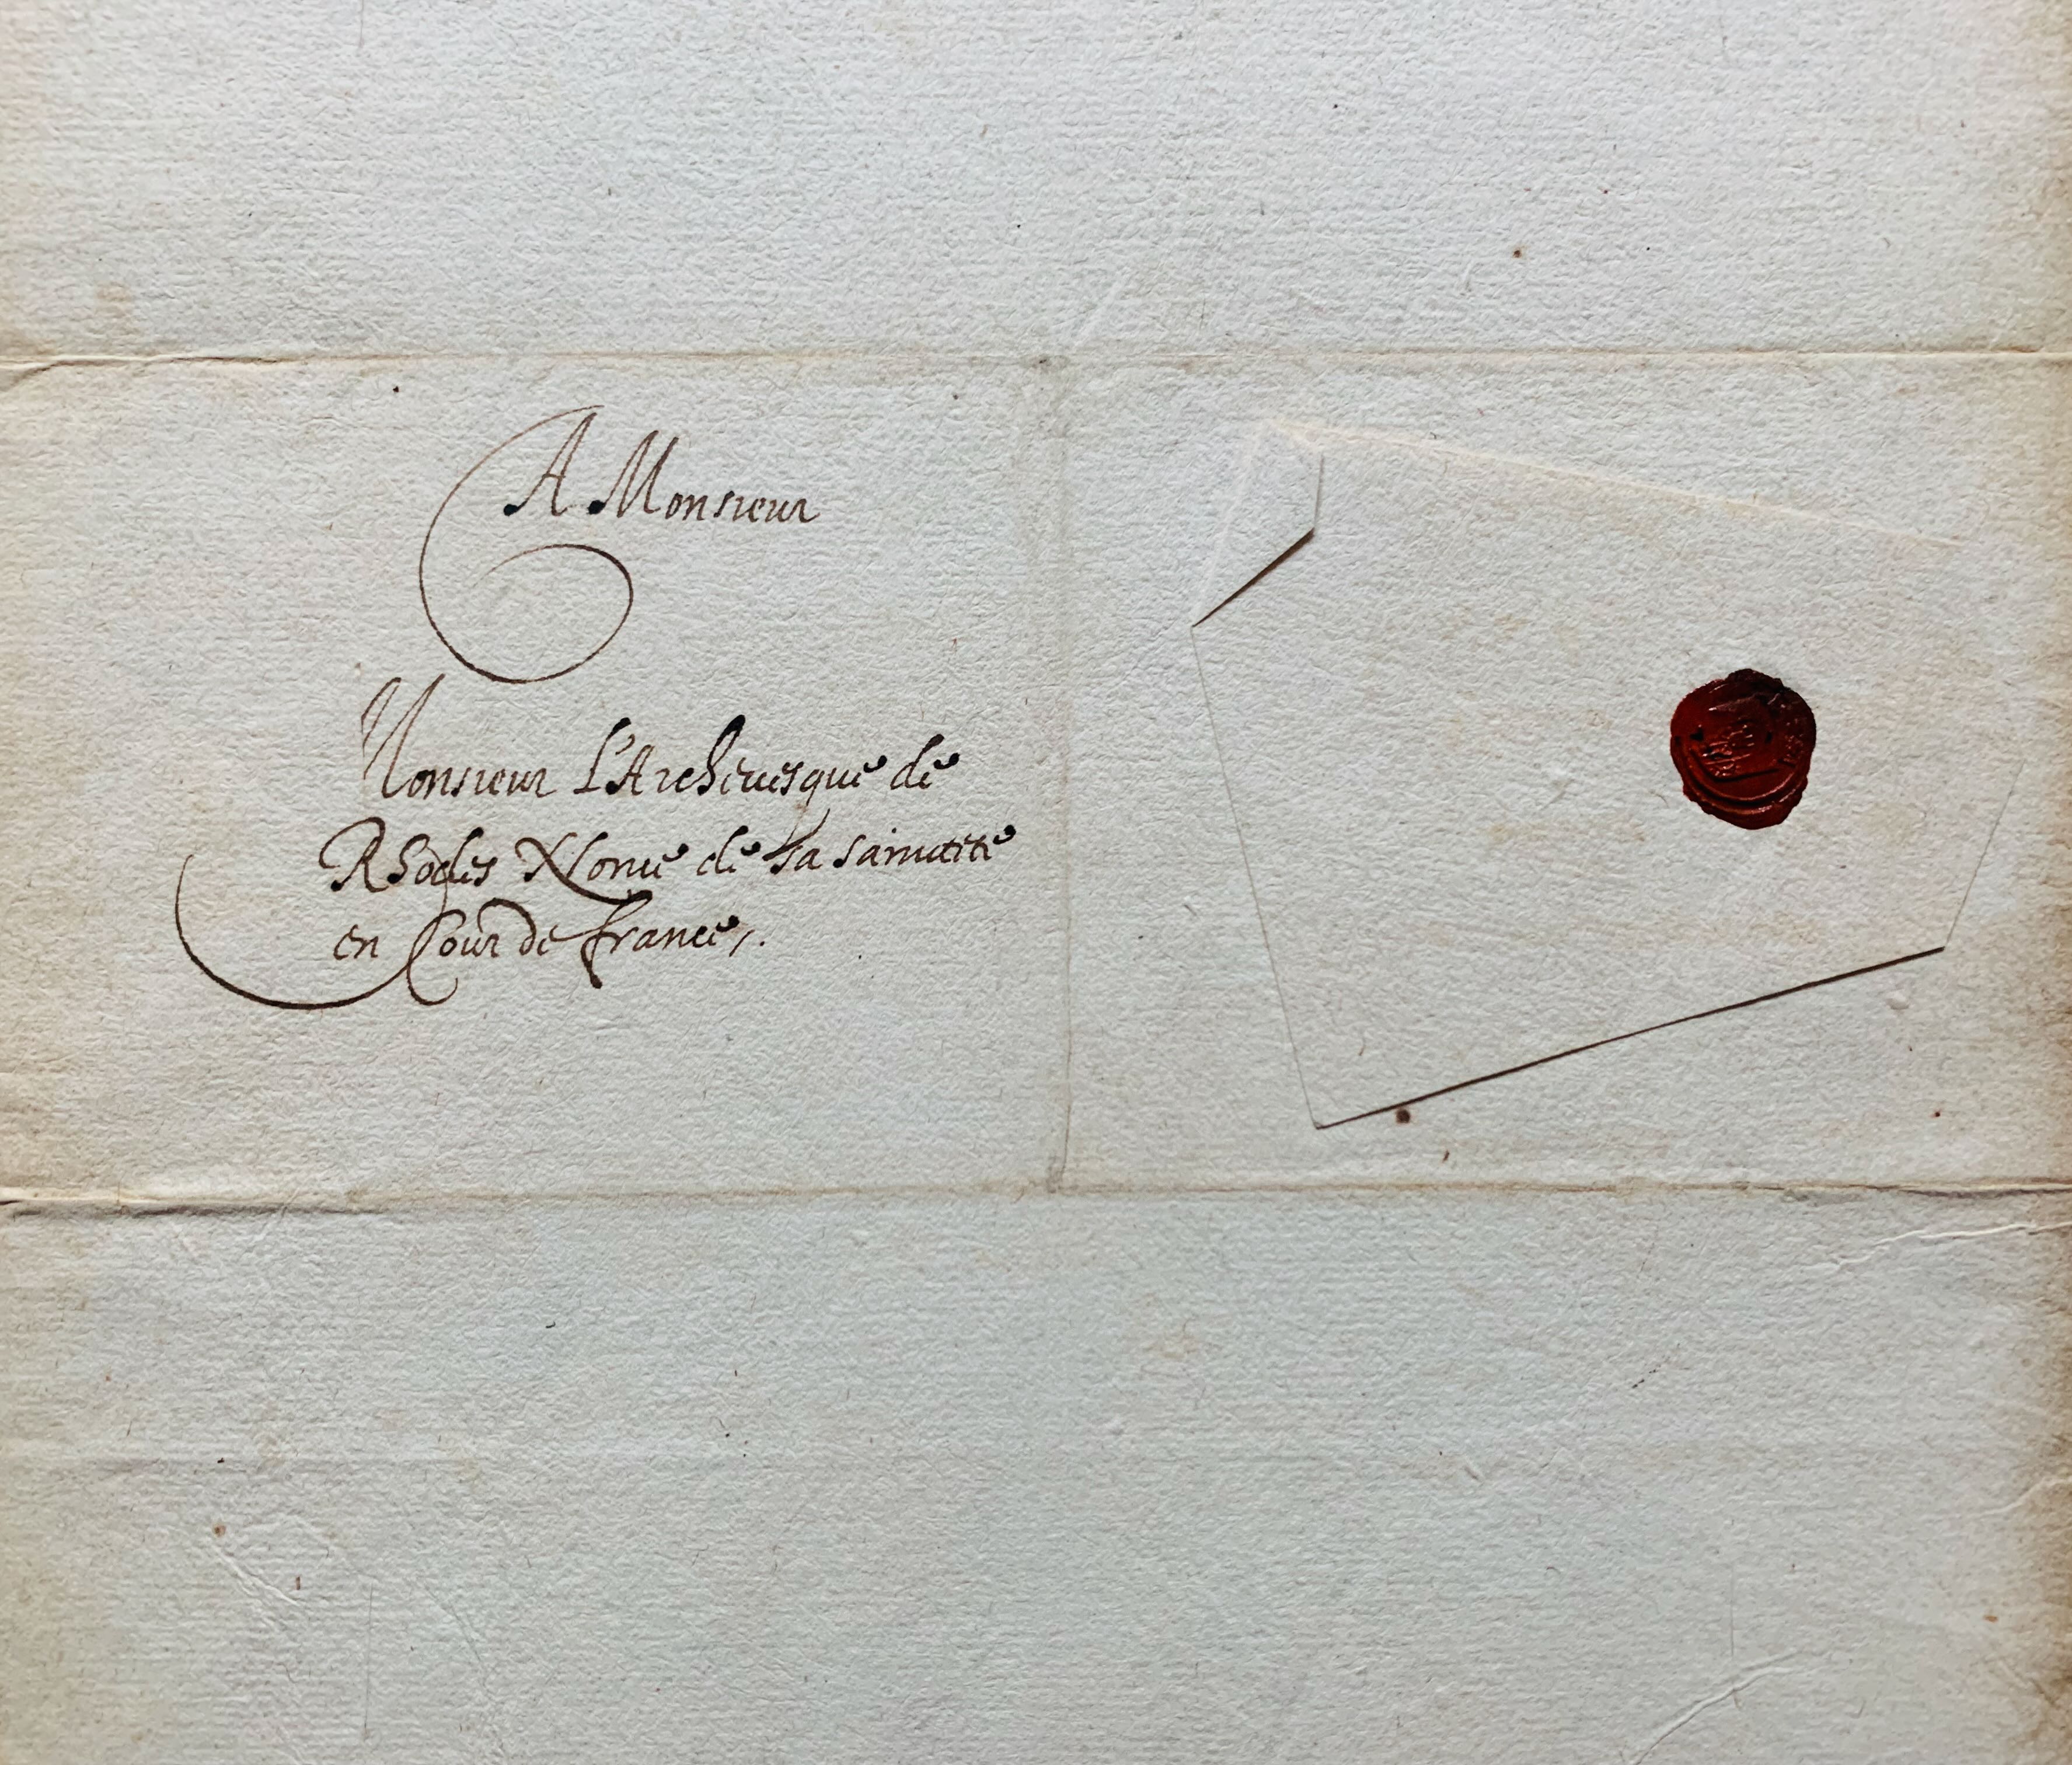 A Monsieur
Monsieur L'Archeuesque de
Rhodes Nonce de sa sainctete
en Cour de france,.